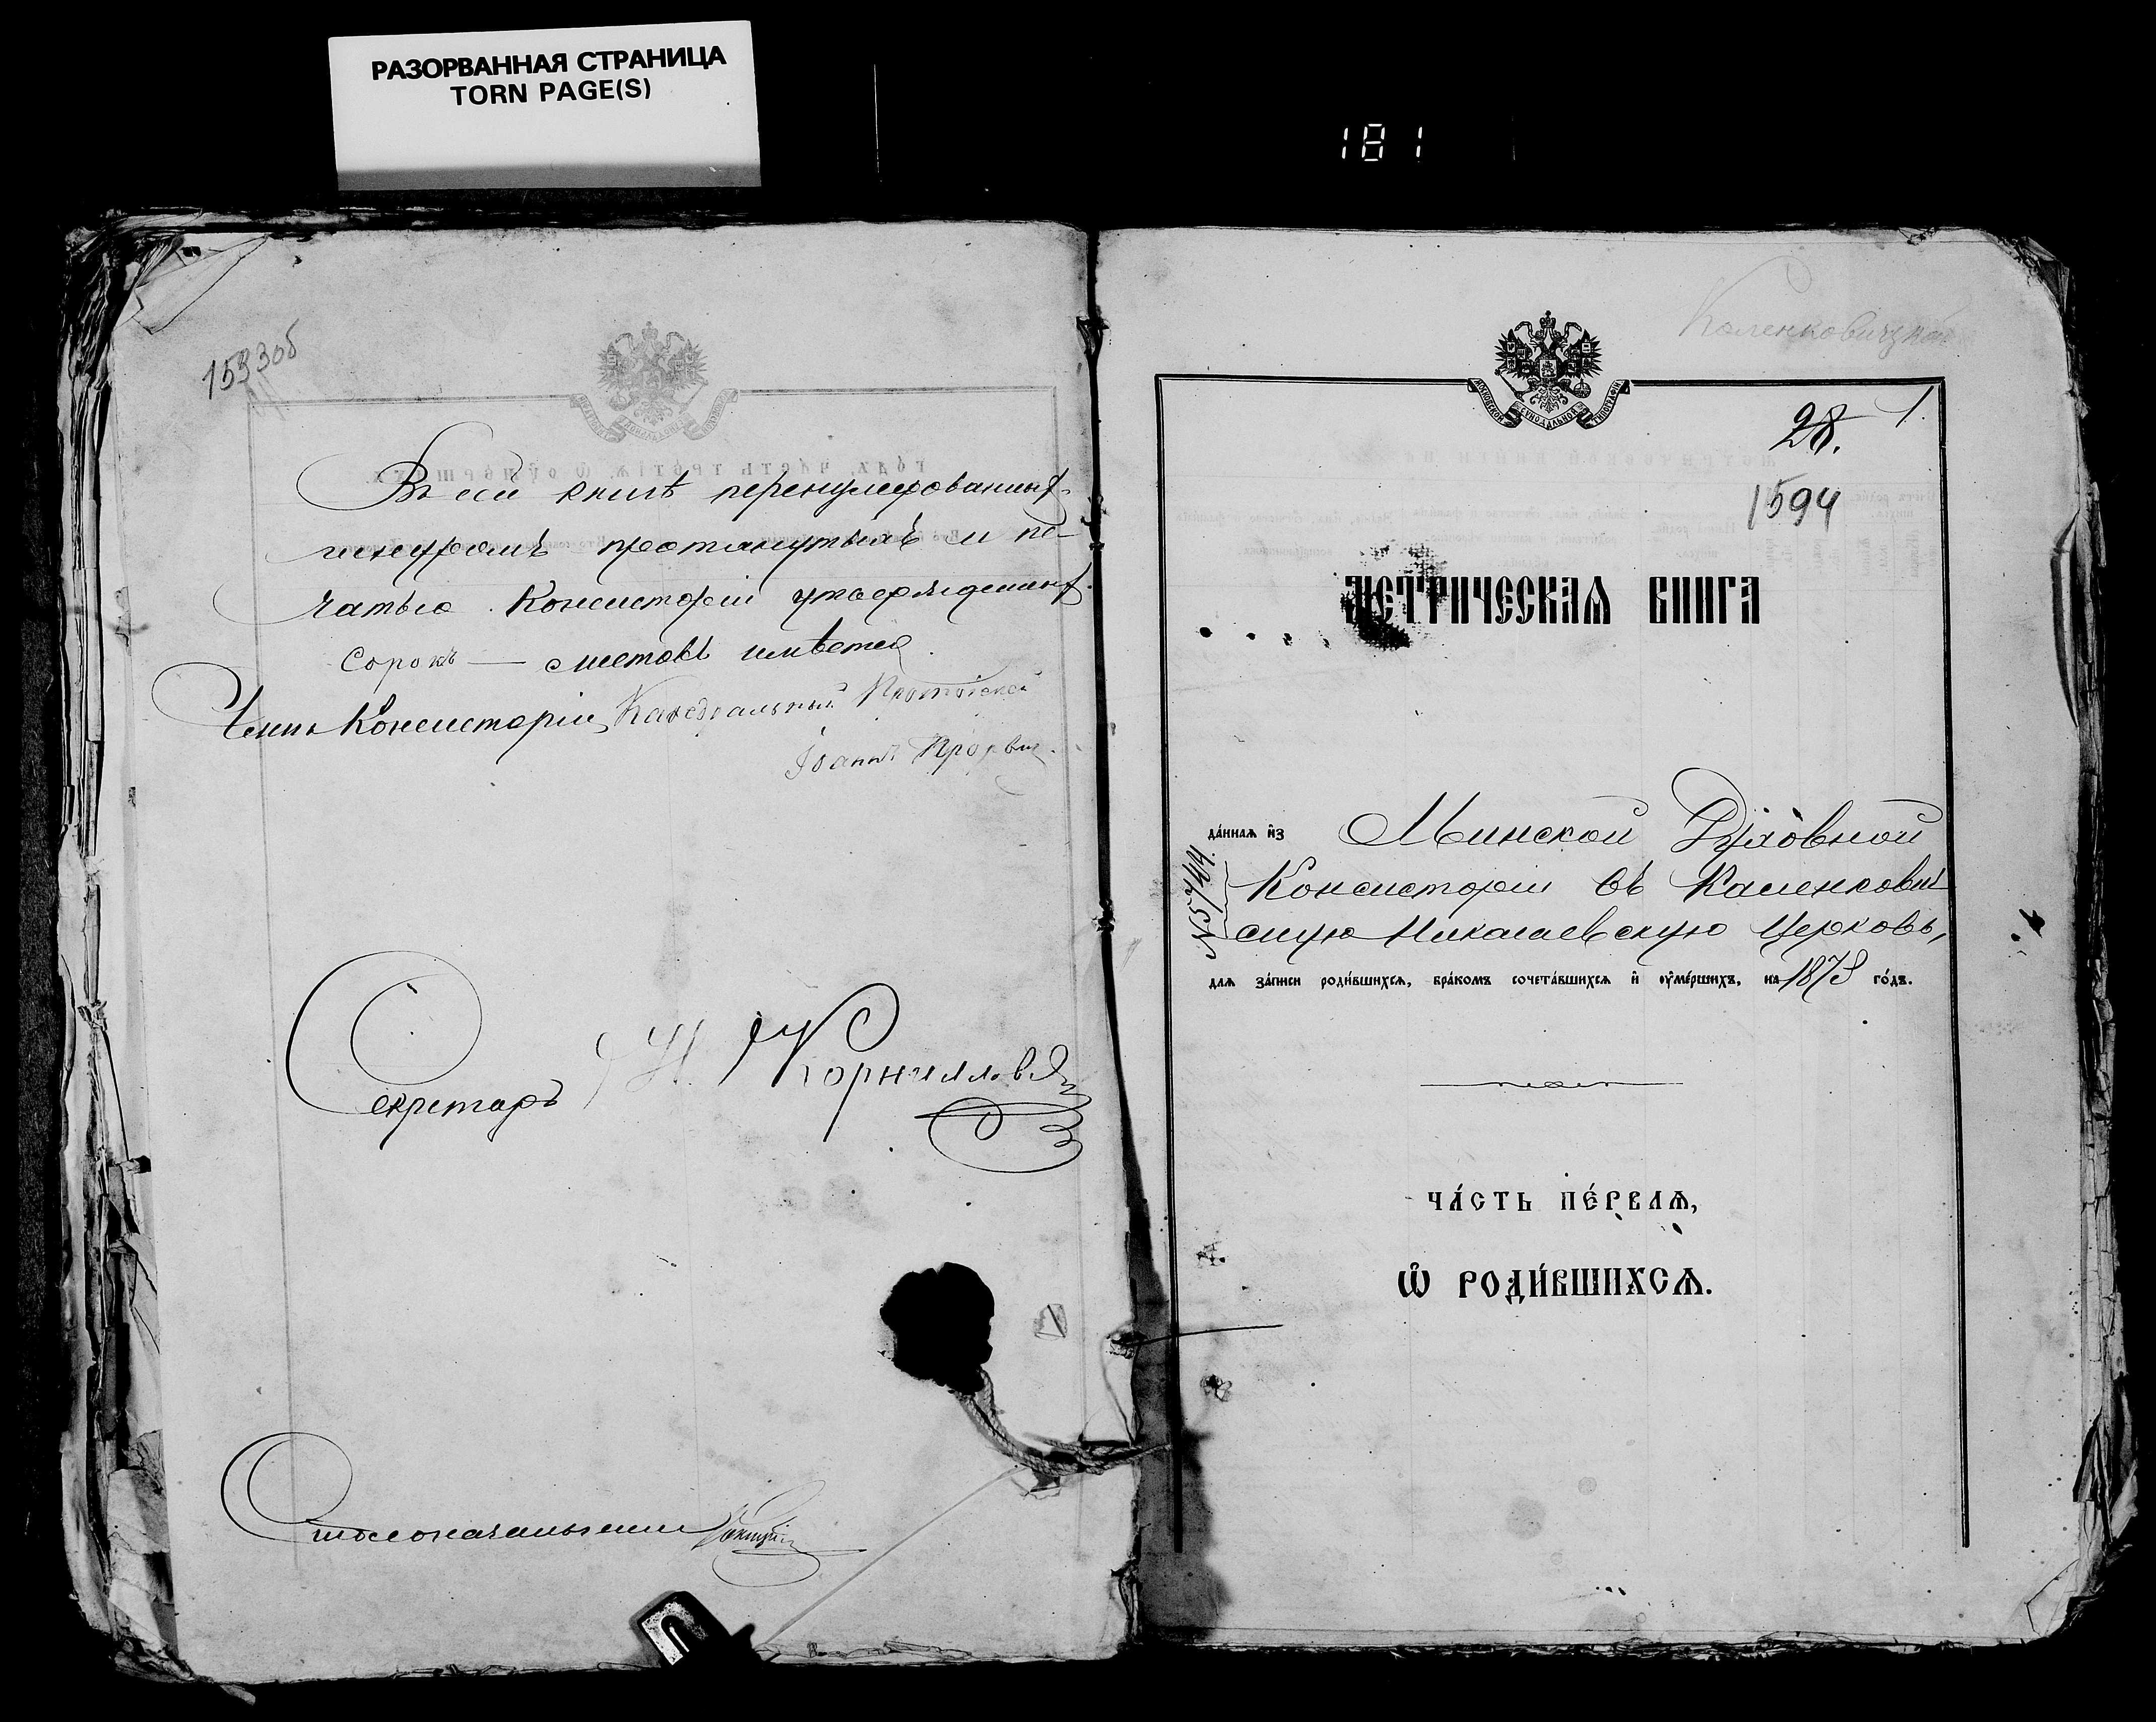 РАЗОРВАННАЯ СТРАНИЦА
TORN PAGE(S)
181
153об
Въ сей книгѣ перенумерованныхъ
шнуромъ протянутыхъ и пе-
чатью Консисторіи утвержденныхъ
Сорокъ — листовъ имѣется.
Членъ Консисторіи, Каѳедральный Протоіерей
Іоаннъ
Секретарь Н. Корниловъ
Столоначальникъ
Каленковицкой
МОСКОВСКОЙ СУНОДАЛЬНОЙ ТИПОГРАФІИ
28. 1.
1594
МЕТРИЧЕСКАѦ КНИГА
да́ннаѧ и҆з Минской Духовной
№5744. Консисторіи въ Каленкович-
скую Николаевскую Церковь,
длѧ за́писи роди́вшихсѧ, бра́комъ сочета́вшихсѧ и҆ ѹ҆ме́ршихъ, на 1873 го́дъ.
ЧА́СТЬ ПЕ́РВАѦ,
Ѽ РОДИ́ВШИХСѦ.